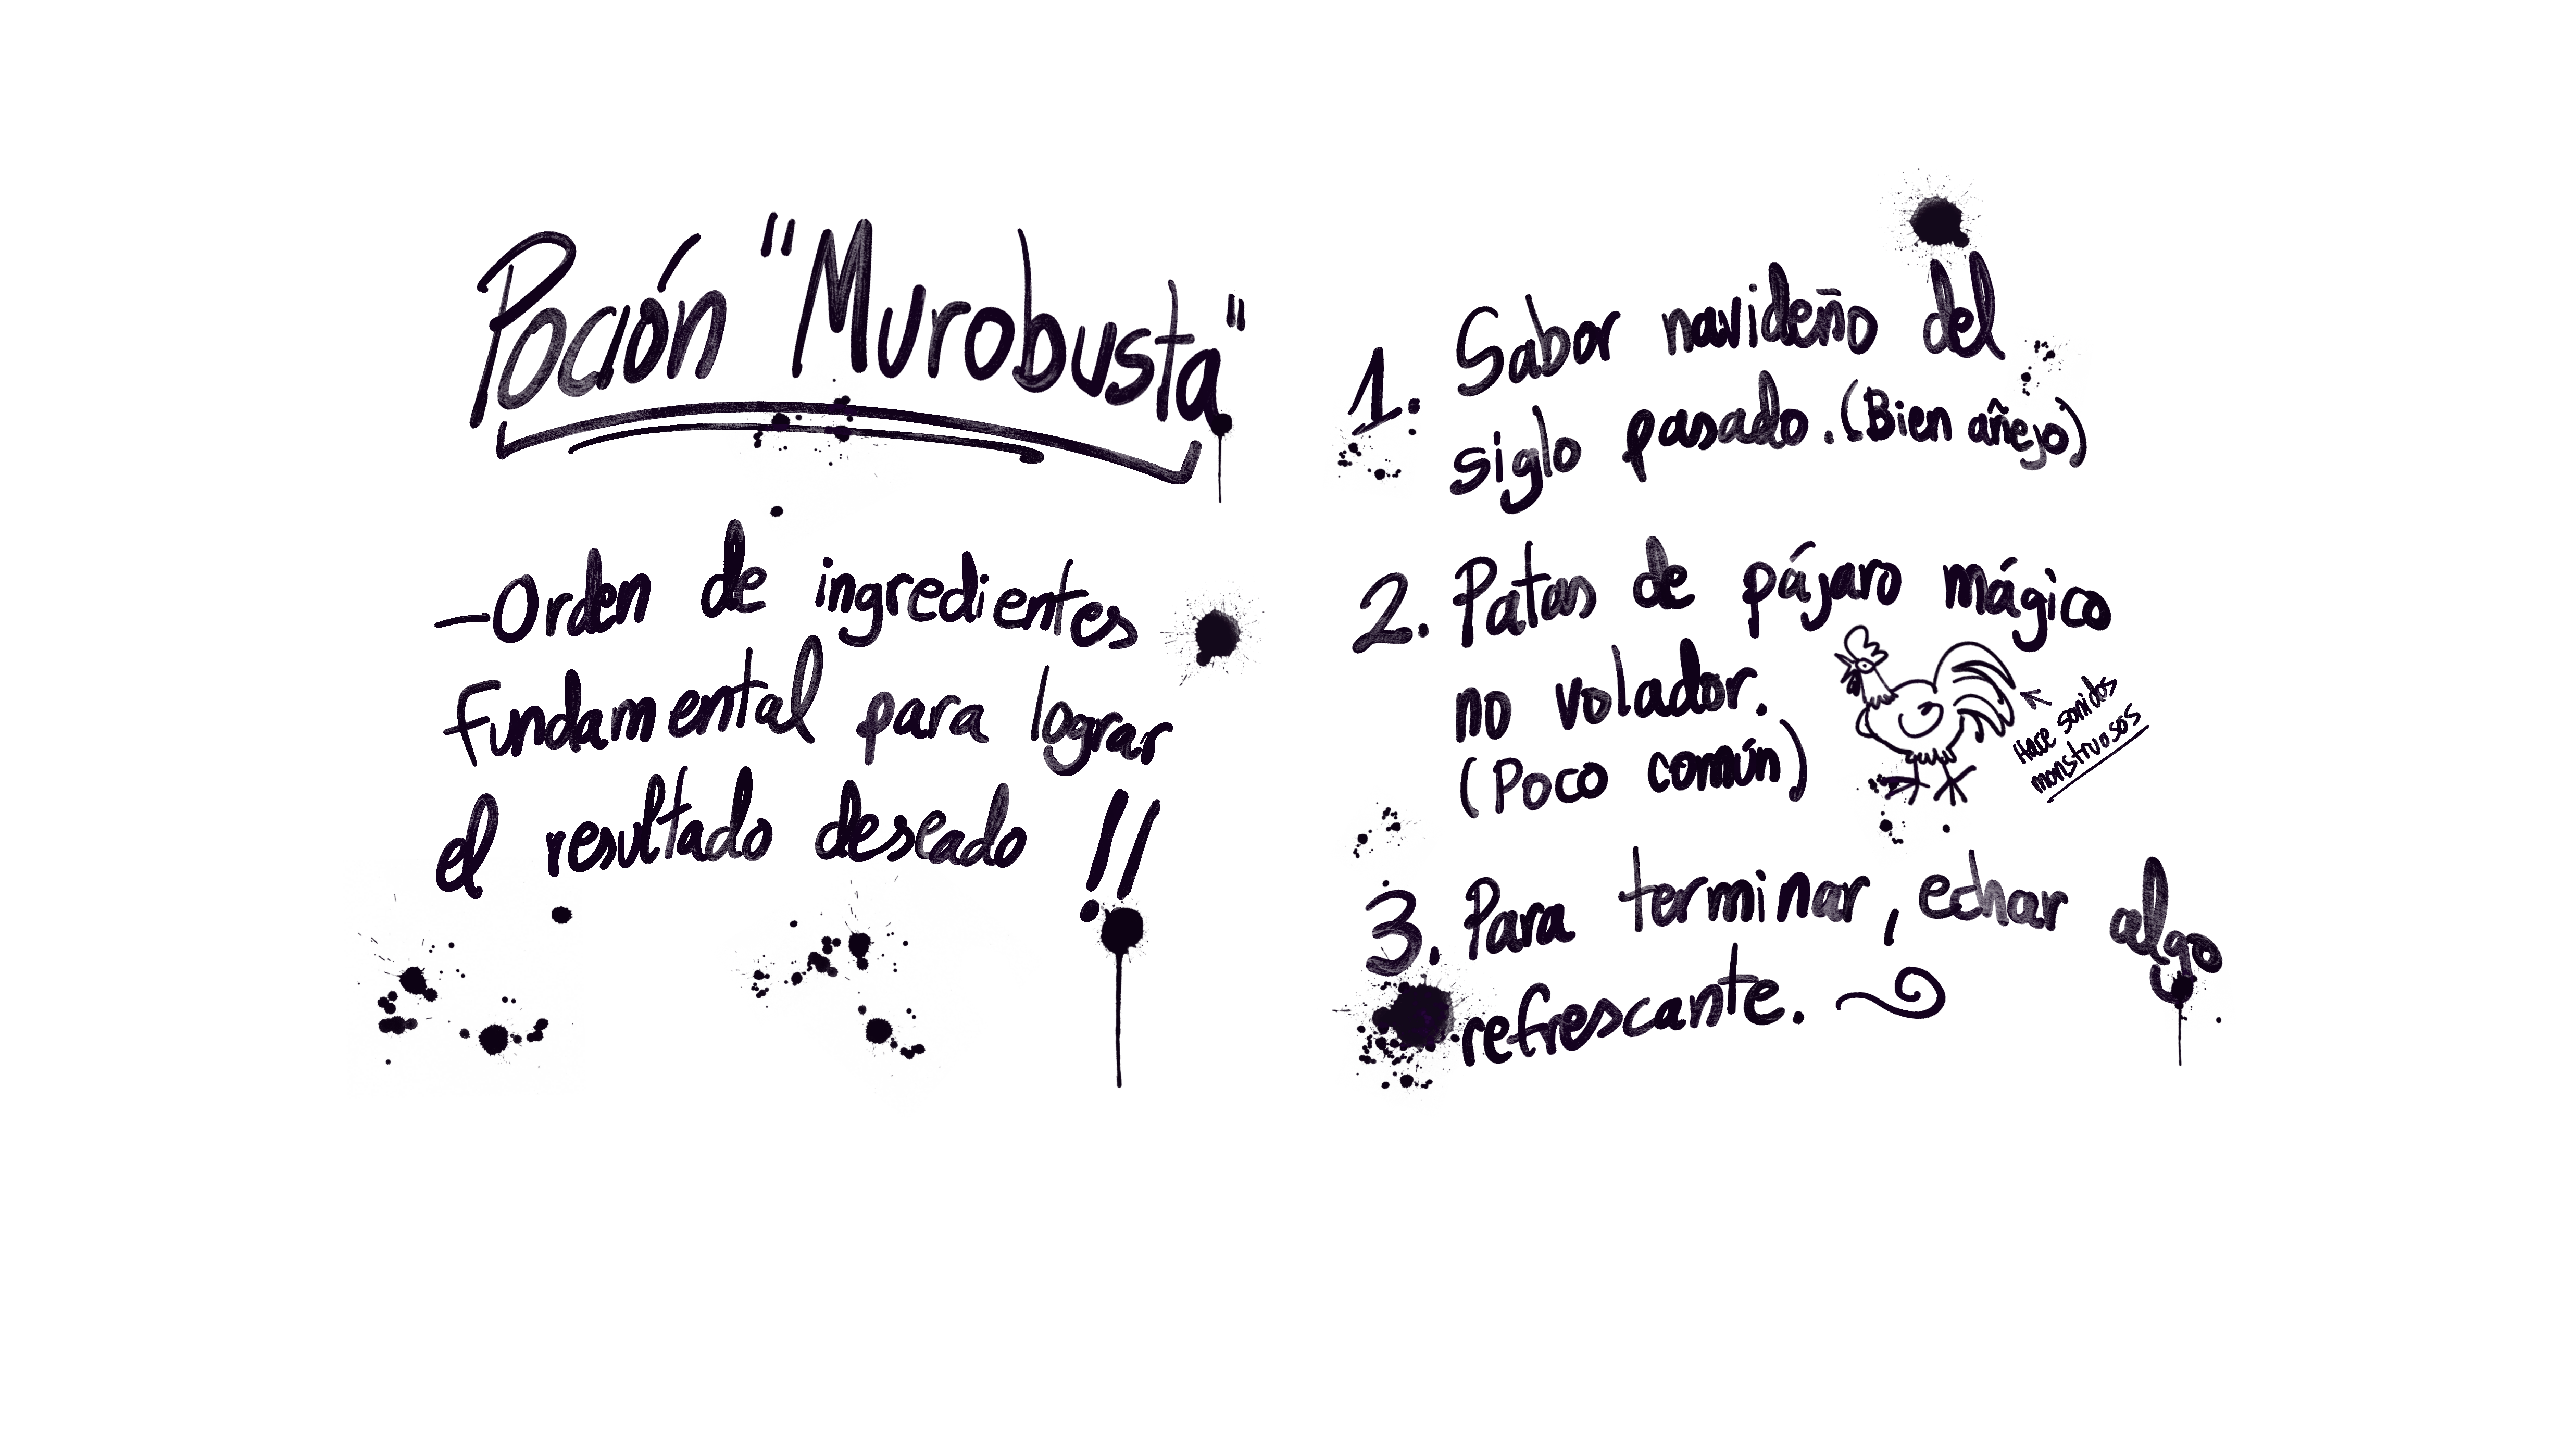 Poción "Murobusta"
-Orden de ingredientes
fundamental para lograr
el resultado deseado !!
1. Sabor navideño del
siglo pasado. (Bien añejo)
2. Patas de pájaro mágico
no volador.
(Poco común)
Hace sonidos
monstruosos
3. Para terminar, echar algo
refrescante.